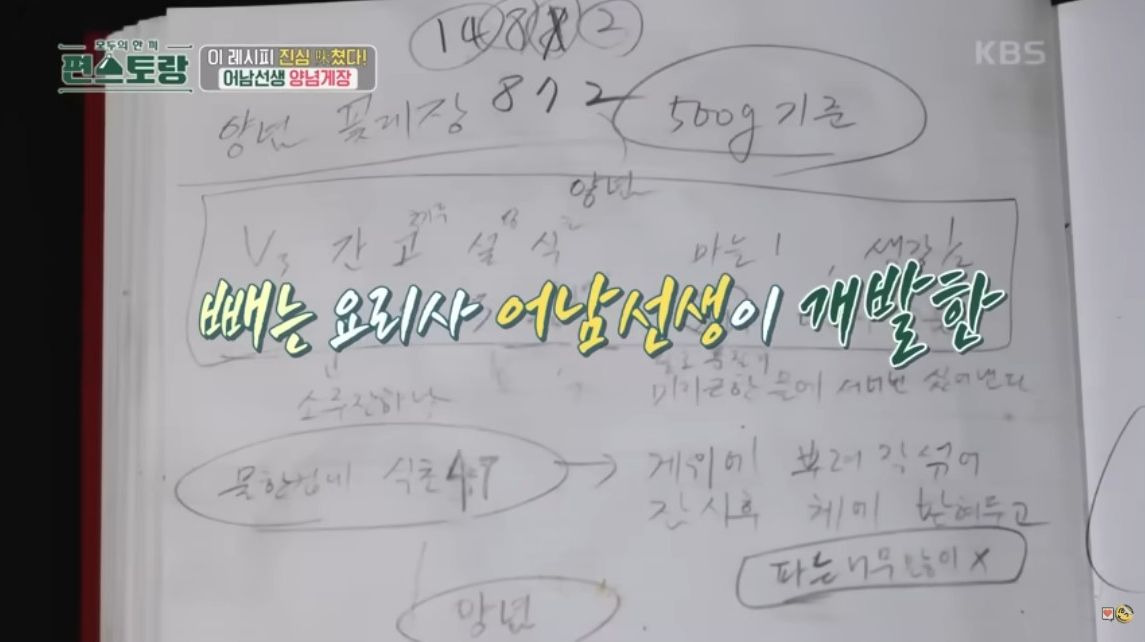 모두의 한 끼
편스토랑
이 레시피 진심 味쳤다!
어남선생 양념게장
KBS
14 8 2
양념 꽃게장 872
500g 기준
양념
간 고 설 식 마늘 1, 생강
빼는 요리사 어남선생이 개발한
소주잔 하나
미지근한 물에 서너번 씻어낸다
물한컵에 식초
→ 게위에 뿌려
잔 시후 체에 받혀두고
파는 너무 많이 X
양념